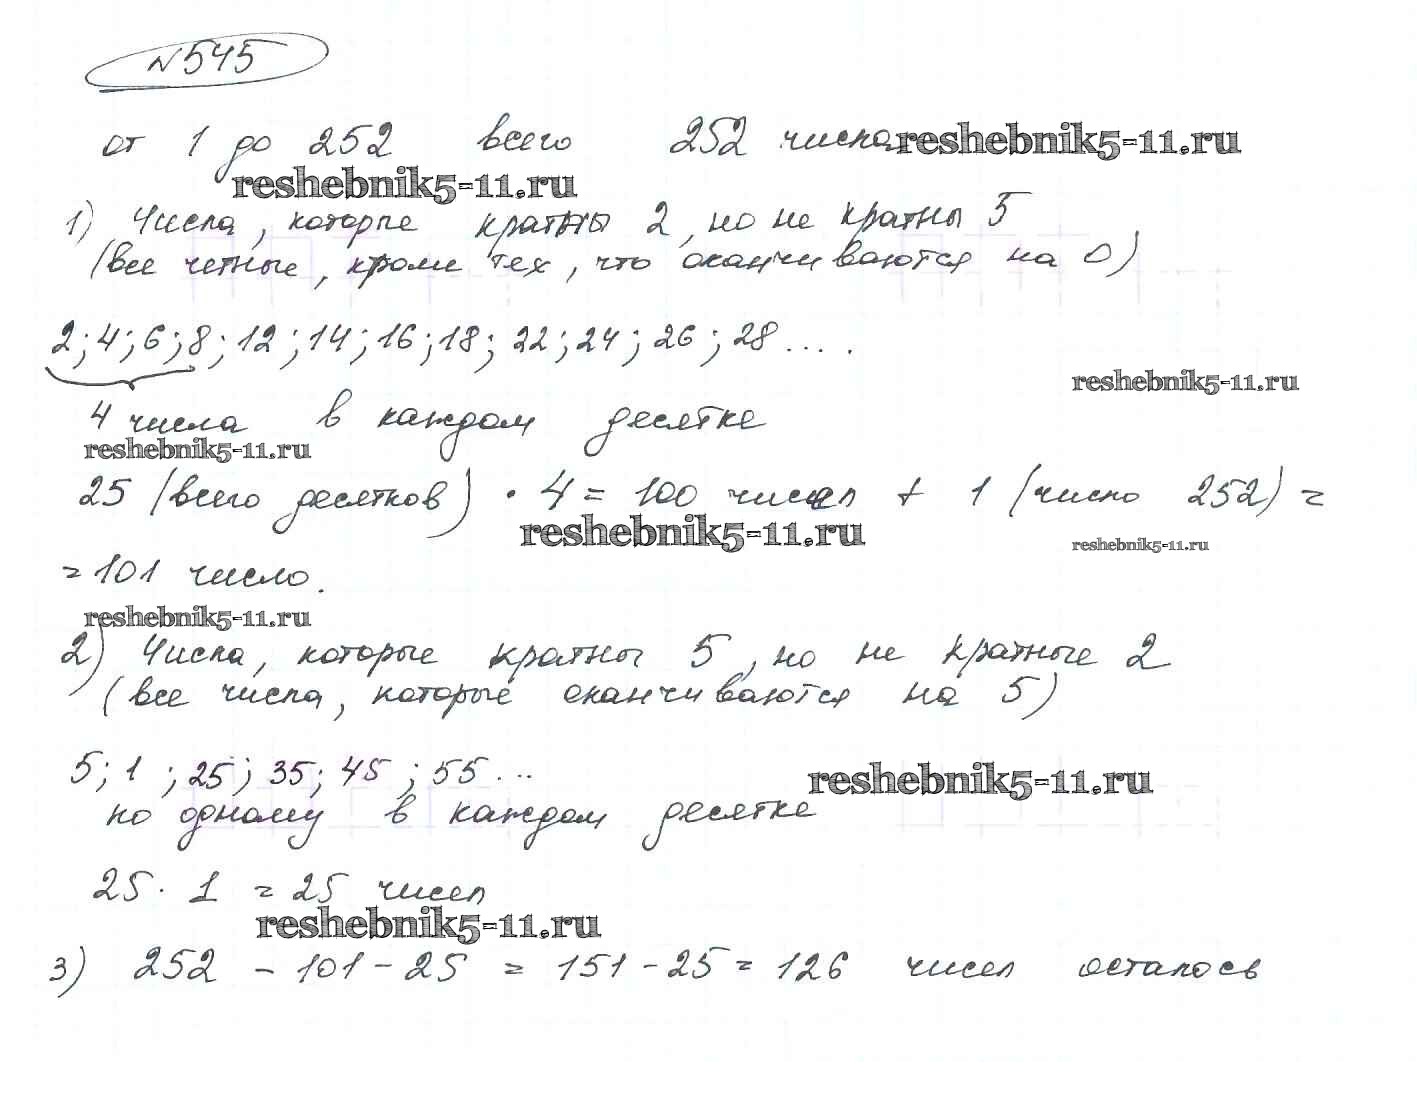 №545
от 1 до 252 всего 252 числа reshebnik5-11.ru
reshebnik5-11.ru
1) Числа, которые кратны 2, но не кратны 5
(все четные, кроме тех, что оканчиваются на 0)
2; 4; 6; 8; 12; 14; 16; 18; 22; 24; 26; 28 ....
reshebnik5-11.ru
4 числа в каждом десятке
reshebnik5-11.ru
25 (всего десятков) · 4 = 100 чисел + 1 (число 252) =
reshebnik5-11.ru
reshebnik5-11.ru
= 101 число.
reshebnik5-11.ru
2) Числа, которые кратны 5, но не кратные 2
(все числа, которые оканчиваются на 5)
5; 1 ; 25; 35; 45 ; 55 ...
reshebnik5-11.ru
по одному в каждом десятке
25 · 1 = 25 чисел
reshebnik5-11.ru
3) 252 - 101 - 25 = 151 - 25 = 126 чисел осталось